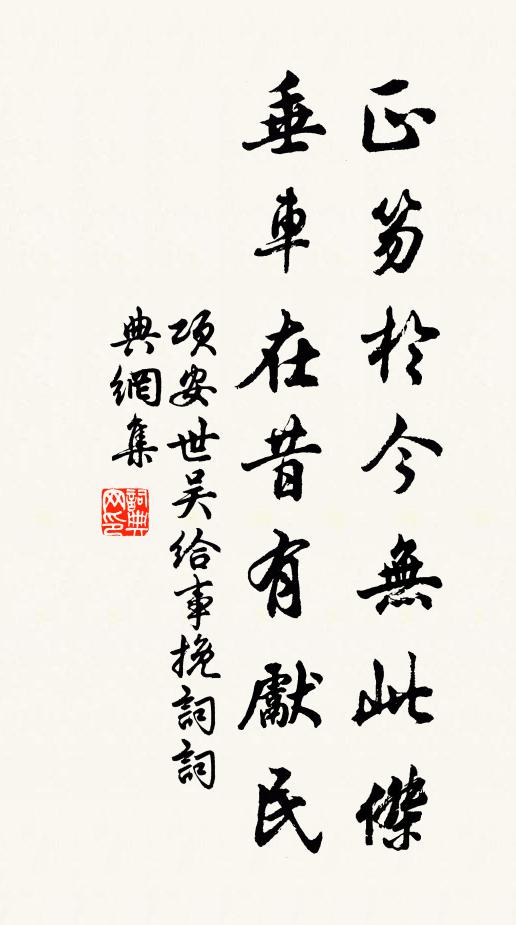 正笏於今無此傑
垂車在昔有獻民
項安世吴給事挽詞詞
典網集
詞典
网印